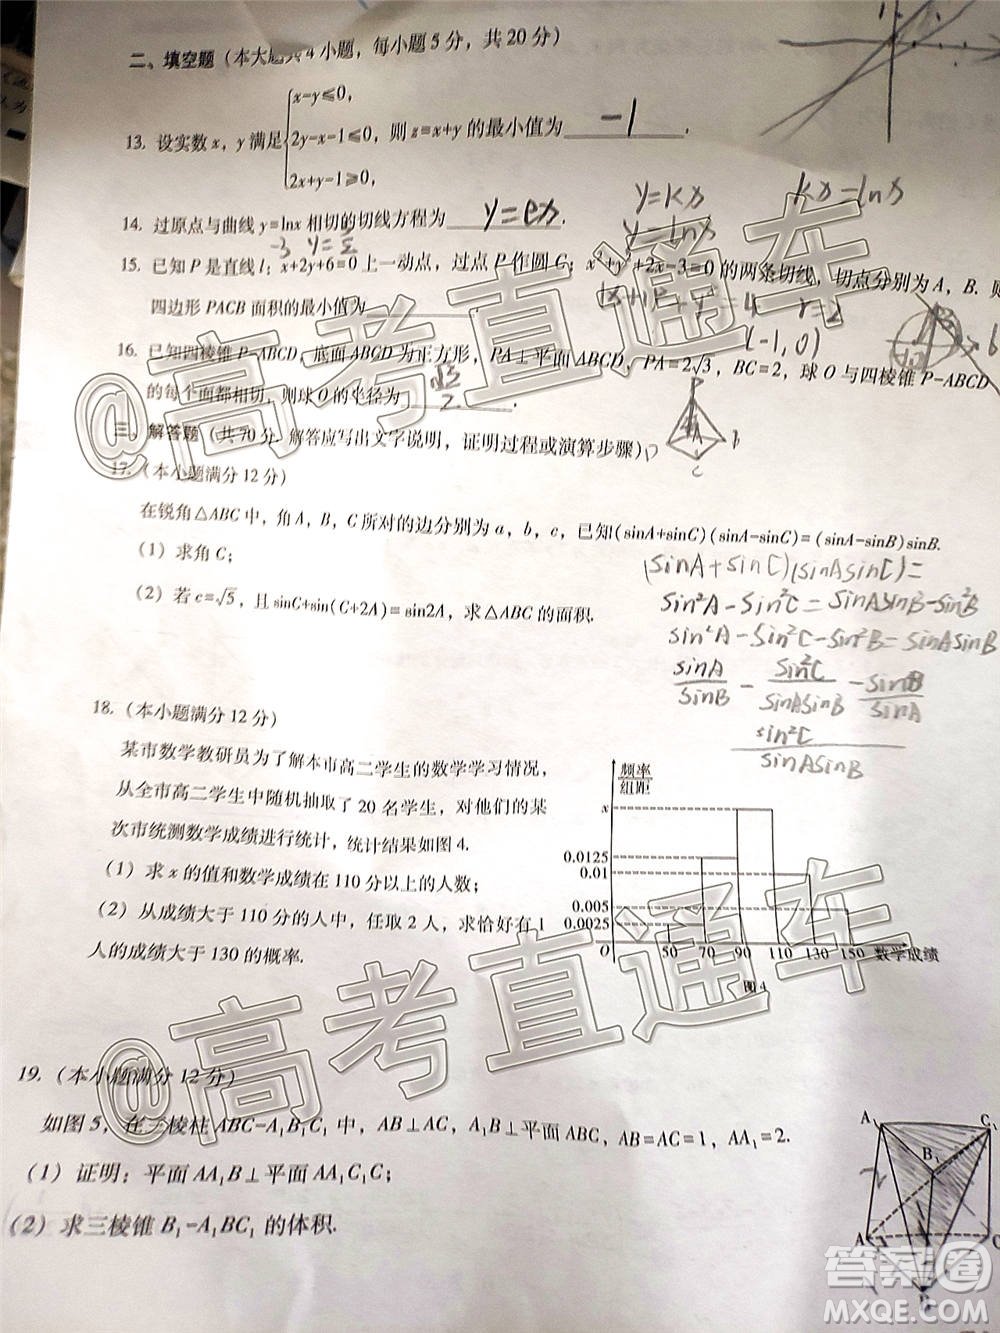 二、填空题（本大题共4小题，每小题5分，共20分）
13. 设实数x，y满足{x-y≤0, 2y-x-1≤0, 2x+y-1≥0, 则z=x+y的最小值为 -1 .
14. 过原点与曲线y=lnx相切的切线方程为 y=ex .
y=kx
kx=lnx
y=lnx
15. 已知P是直线l：x+2y+6=0上一动点，过点P作圆C：x²+y²+2x-3=0的两条切线，切点分别为A，B. 则
四边形PACB面积的最小值为
r=2
(-1,0)
16. 已知四棱锥P-ABCD，底面ABCD为正方形，PA⊥平面ABCD，PA=2√3，BC=2，球O与四棱锥P-ABCD
的每个面都相切，则球O的半径为 √3/2 .
三、解答题（共70分. 解答应写出文字说明，证明过程或演算步骤）
17.（本小题满分12分）
在锐角△ABC中，角A，B，C所对的边分别为a，b，c，已知(sinA+sinC)(sinA-sinC)=(sinA-sinB)sinB.
（1）求角C；
（2）若c=√5，且sinC+sin(C+2A)=sin2A，求△ABC的面积.
sin²A-sin²C=sinAsinB-sin²B
sin²A-sin²C-sin²B=sinAsinB
sinA/sinB - sin²C/sinAsinB - sinB/sinA
sin²C/sinAsinB
18.（本小题满分12分）
某市数学教研员为了解本市高二学生的数学学习情况，
从全市高二学生中随机抽取了20名学生，对他们的某
次市统测数学成绩进行统计，统计结果如图4.
（1）求x的值和数学成绩在110分以上的人数；
（2）从成绩大于110分的人中，任取2人，求恰好有1
人的成绩大于130的概率.
频率
组距
x
0.0125
0.01
0.005
0.0025
O 50 70 90 110 130 150 数学成绩
图4
19.（本小题满分12分）
如图5，在三棱柱ABC-A₁B₁C₁中，AB⊥AC，A₁B⊥平面ABC，AB=AC=1，AA₁=2.
（1）证明：平面AA₁B⊥平面AA₁C₁C；
（2）求三棱锥B₁-A₁BC₁的体积.
A₁ C₁
B₁
A C
B
@高考直通车
@高考直通车
答案圈
MXQE.COM